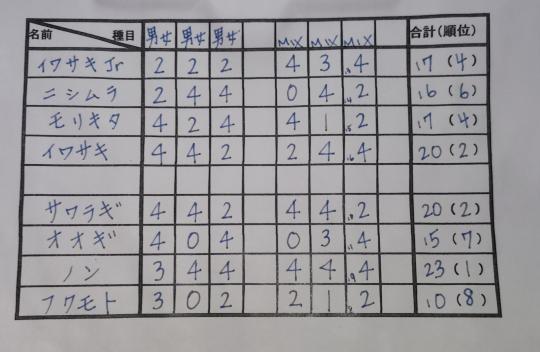 名前 種目 男女 男女 男女 MIX MIX MIX 合計(順位)
イワサキJr 2 2 2 4 3 4 17(4)
ニシムラ 2 4 4 0 4 2 16(6)
モリキタ 4 2 4 4 1 2 17(4)
イワサキ 4 4 2 2 4 4 20(2)
サワラギ 4 4 2 4 4 2 20(2)
オオギ 4 0 4 0 3 4 15(7)
ノン 3 4 4 4 4 4 23(1)
フクモト 3 0 2 2 1 2 10(8)